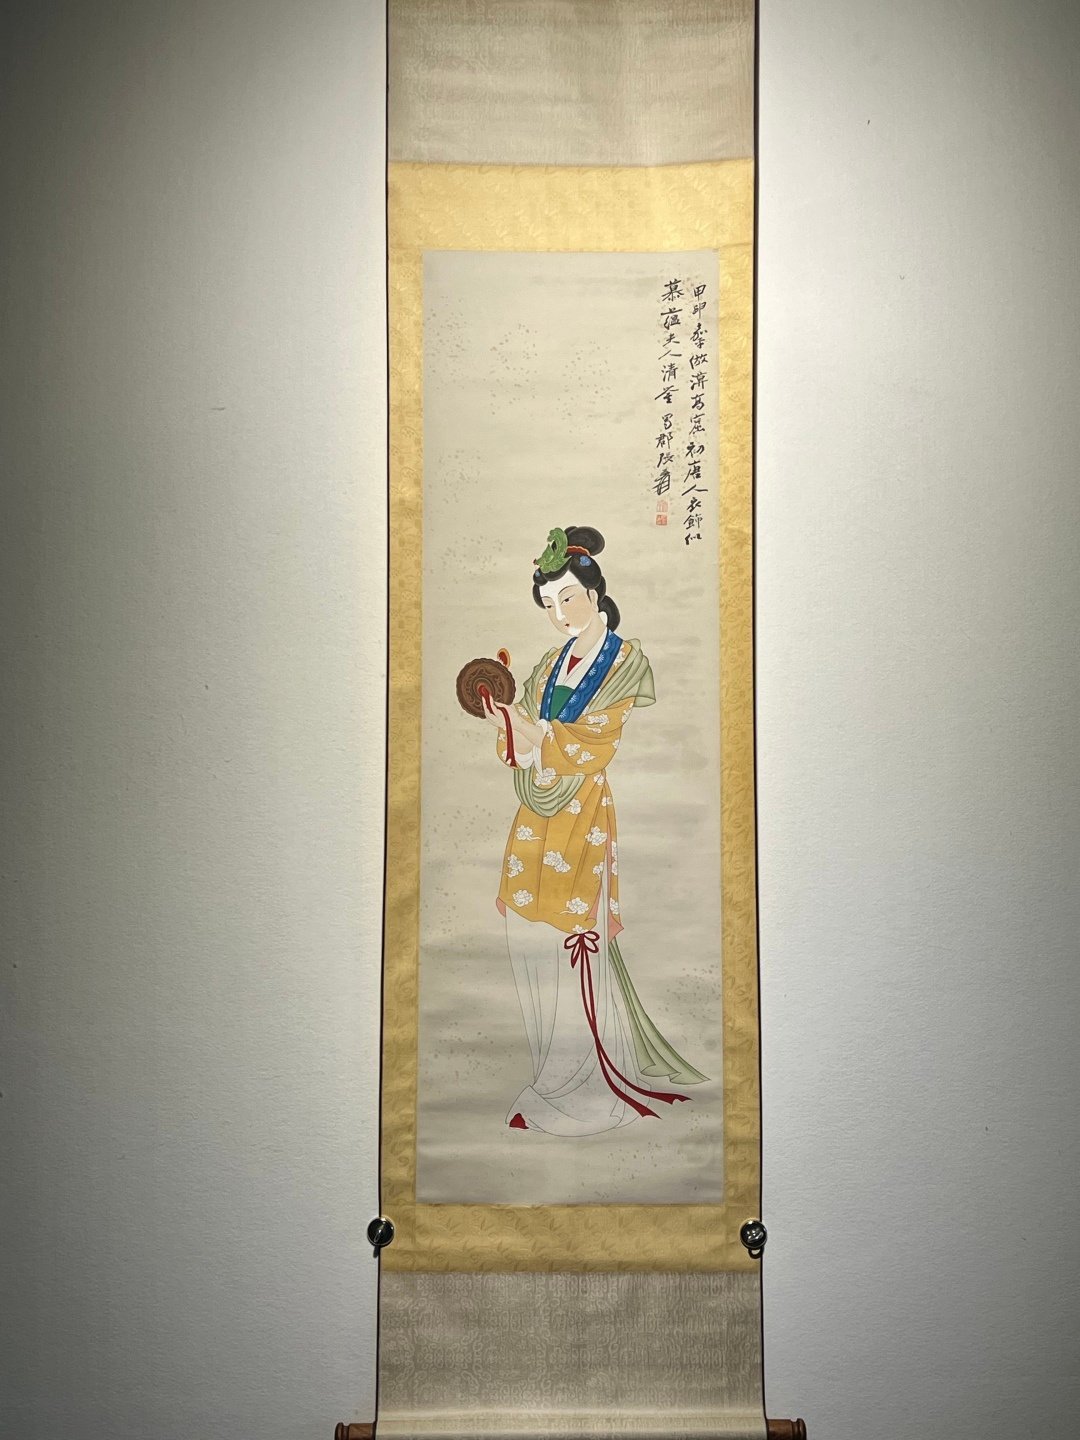 甲申倣漠高窟初唐人衣飾似
慕蘊夫人清鑒 蜀郡張爰